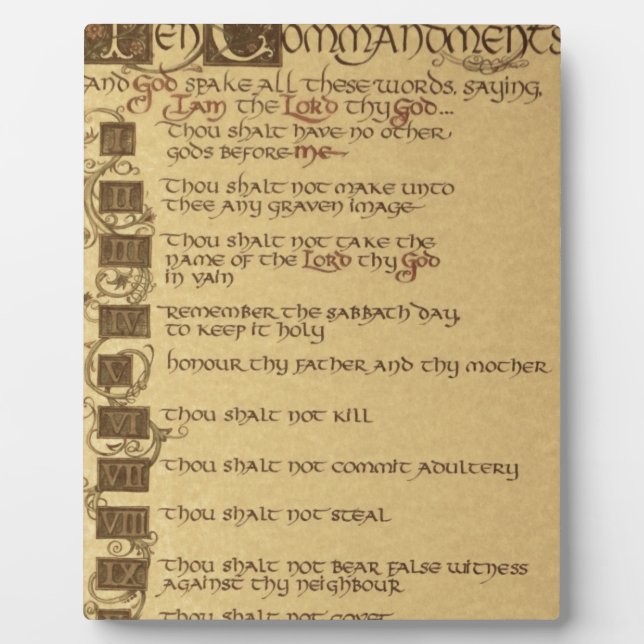 Ten Commandments
and God spake all these words, saying,
I am the Lord thy God...
I Thou shalt have no other
gods before me
II Thou shalt not make unto
thee any graven image
III Thou shalt not take the
name of the Lord thy God
in vain
IV Remember the sabbath day,
to keep it holy
V honour thy father and thy mother
VI Thou shalt not kill
VII Thou shalt not commit adultery
VIII Thou shalt not steal
IX Thou shalt not bear false witness
against thy neighbour
Thou shalt not covet